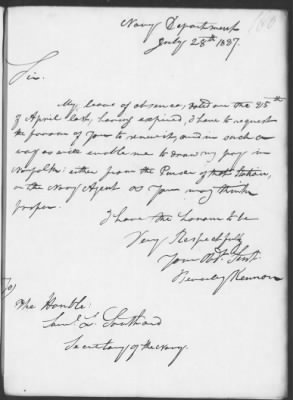 Navy Department
July 28th 1827.
Sir.
My leave of absence, dated on the 25th
of April last, having expired, I have to request
the favour of you to renew it, and in such a
way as will enable me to draw my pay in
Norfolk: either from the Purser of that Station,
or the Navy Agent as You may think
proper.
I have the honour to be
Very Respectfully
Your Obt. Servt.
Beverley Kennon
The Honble:
Saml. L. Southard
Secretary of the Navy.